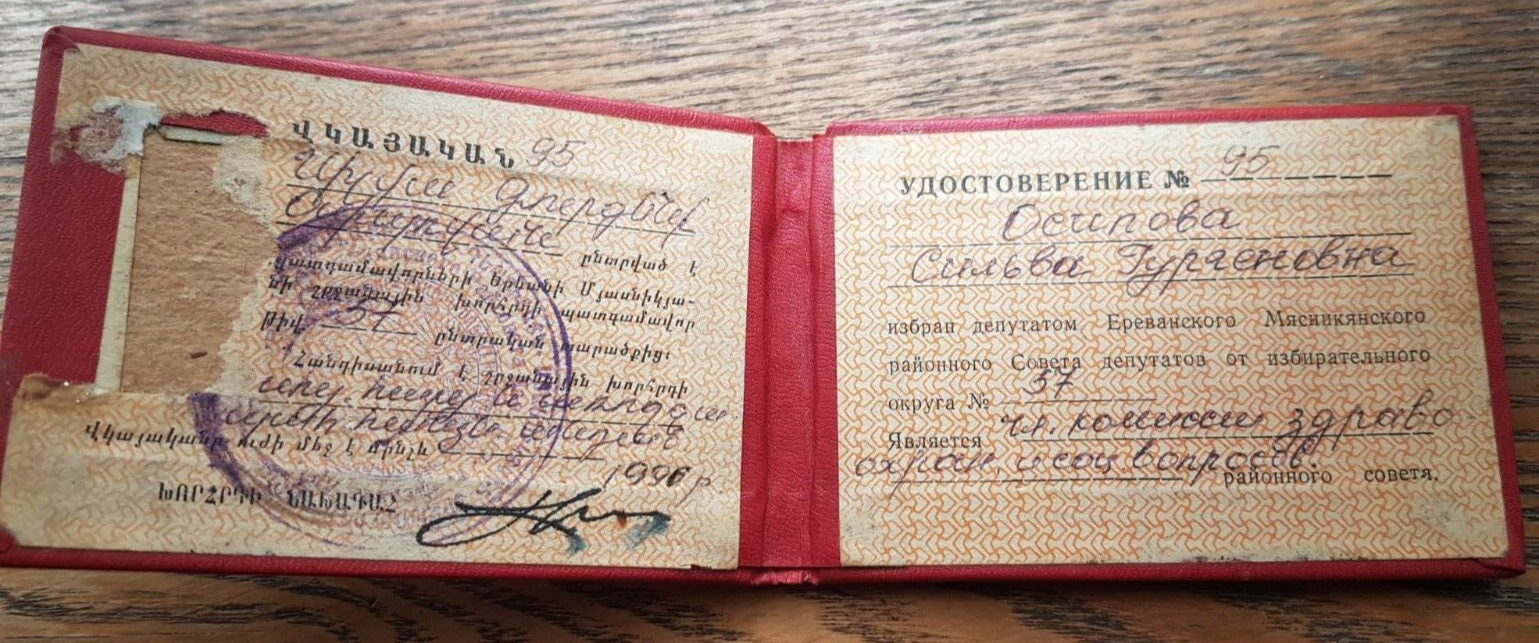 ՎԿԱՅԱԿԱՆ 95
Սիլվա Գուրգենի
Օսիպովան
ընտրված է
պատգամավորների Երևանի Մյասնիկյա-
նի շրջանային խորհրդի պատգամավոր
թիվ 37 ընտրական տարածքից:
Հանդիսանում է շրջանային խորհրդի
Վկայականը ուժի մեջ է մինչև
1990 թ
ԽՈՐՀՐԴԻ ՆԱԽԱԳԱՀ
УДОСТОВЕРЕНИЕ № 95
Осипова
Сильва Гургеновна
избран депутатом Ереванского Мясникянского
районного Совета депутатов от избирательного
округа № 37
Является чл. комиссии здраво
охран. и соц вопросов.
районного совета.